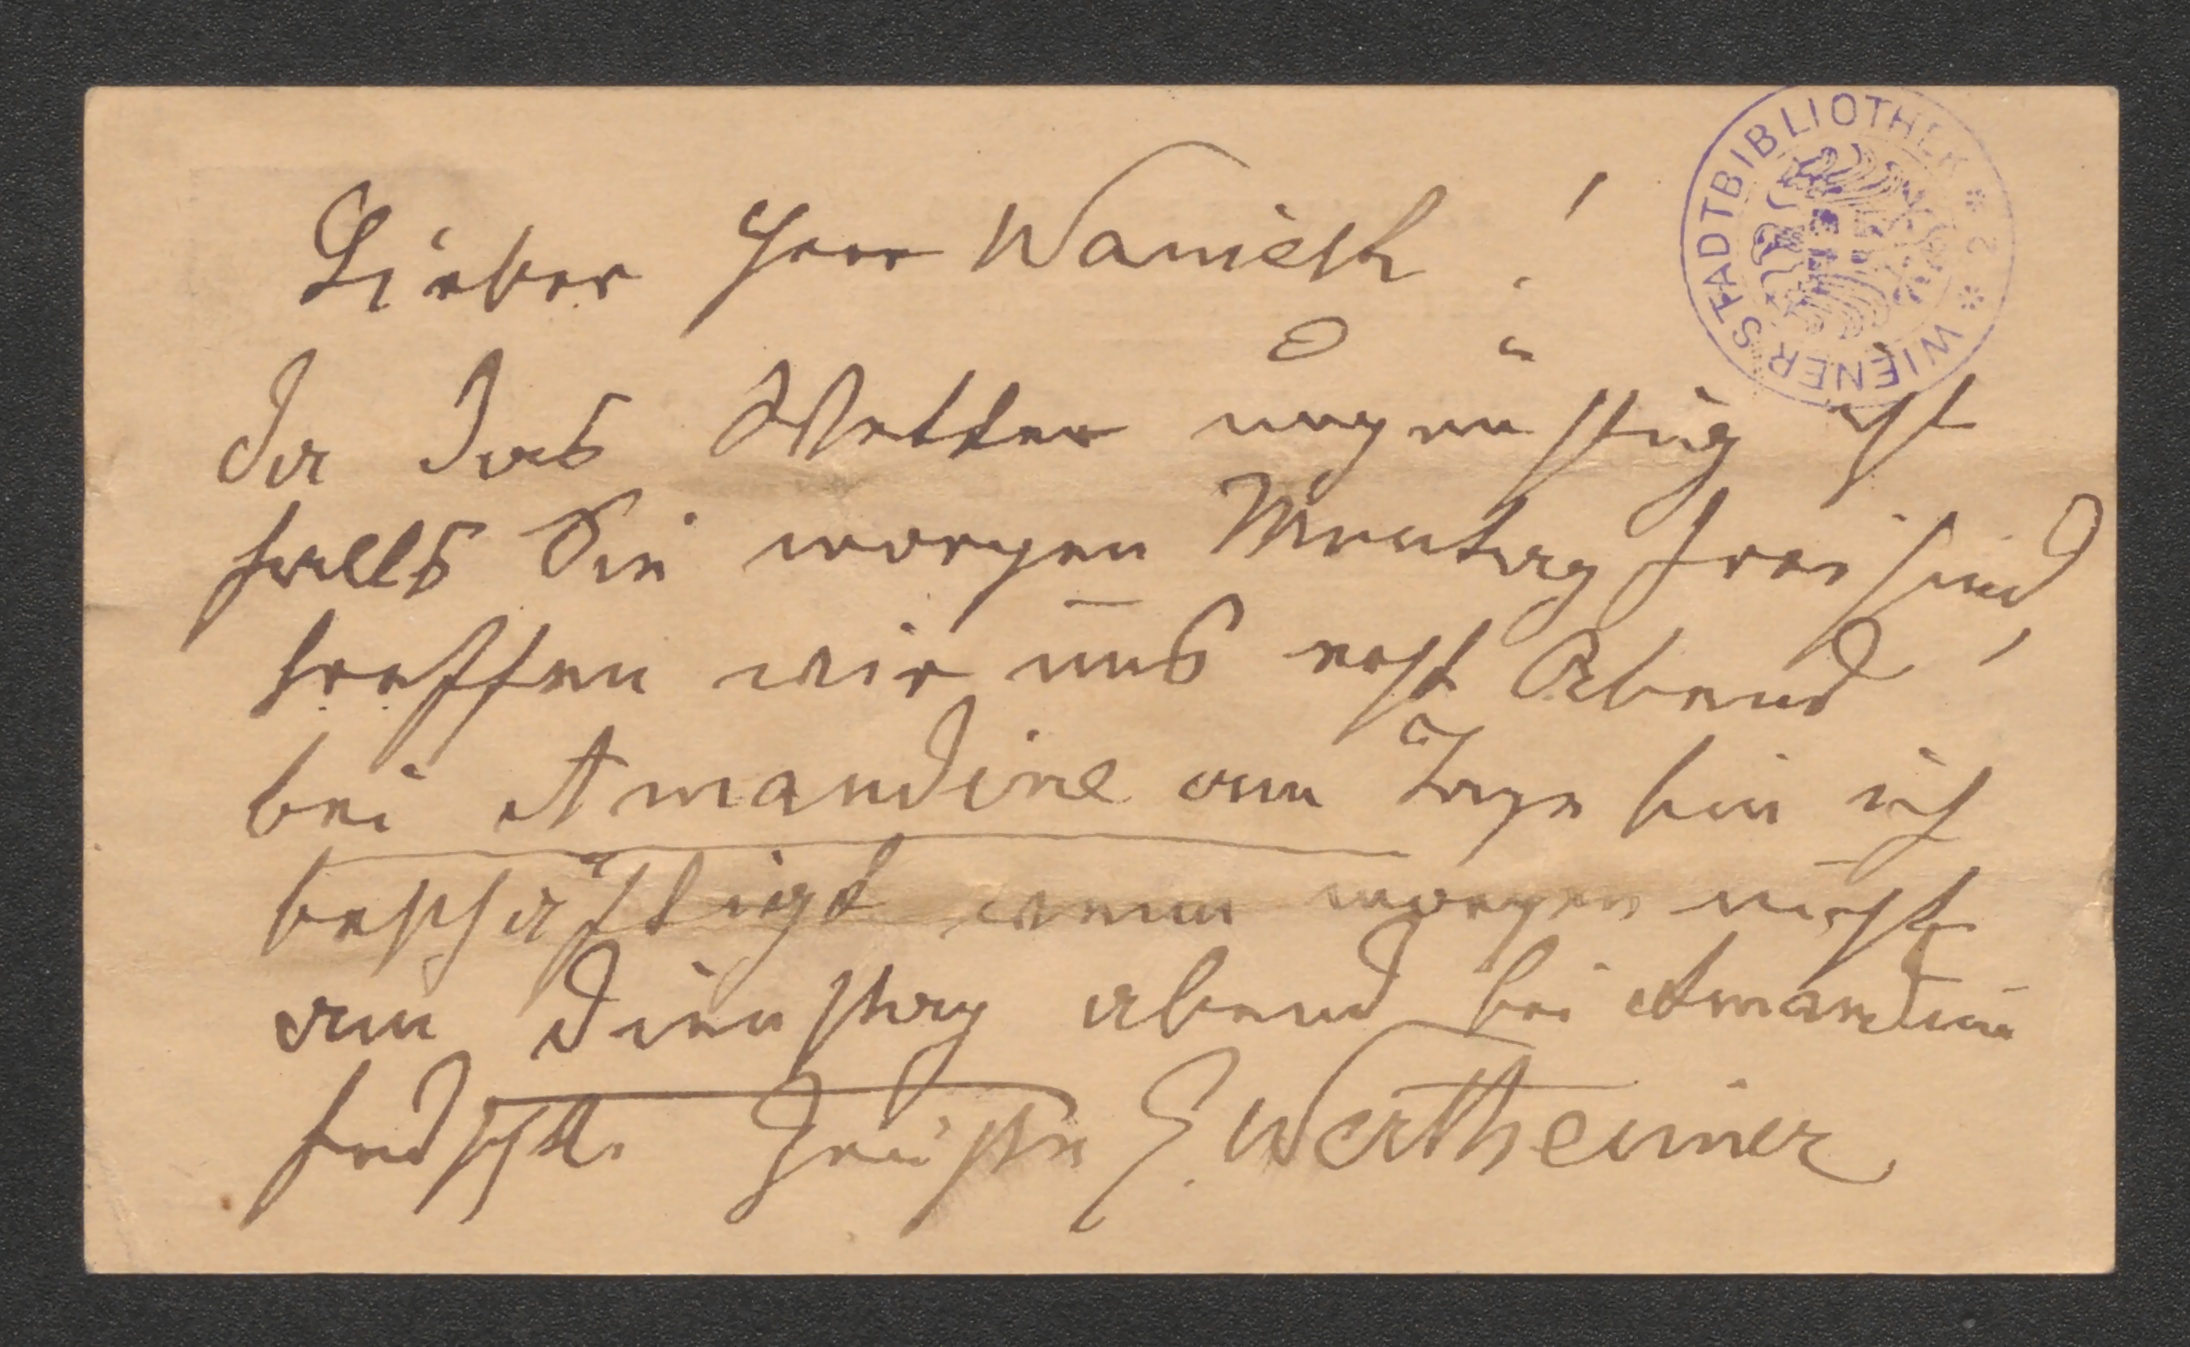 Lieber Herr Wanieck!
Da das Wetter ungünstig ist
falls Sie morgen Montag frei sind,
treffen wir uns erst Abend
bei Amandine am Tage bin ich
beschäftigt wenn morgen nicht
am Dienstag abend bei Amandine
Grüße E. Wertheimer
WIENER STADTBIBLIOTHEK * 2 *